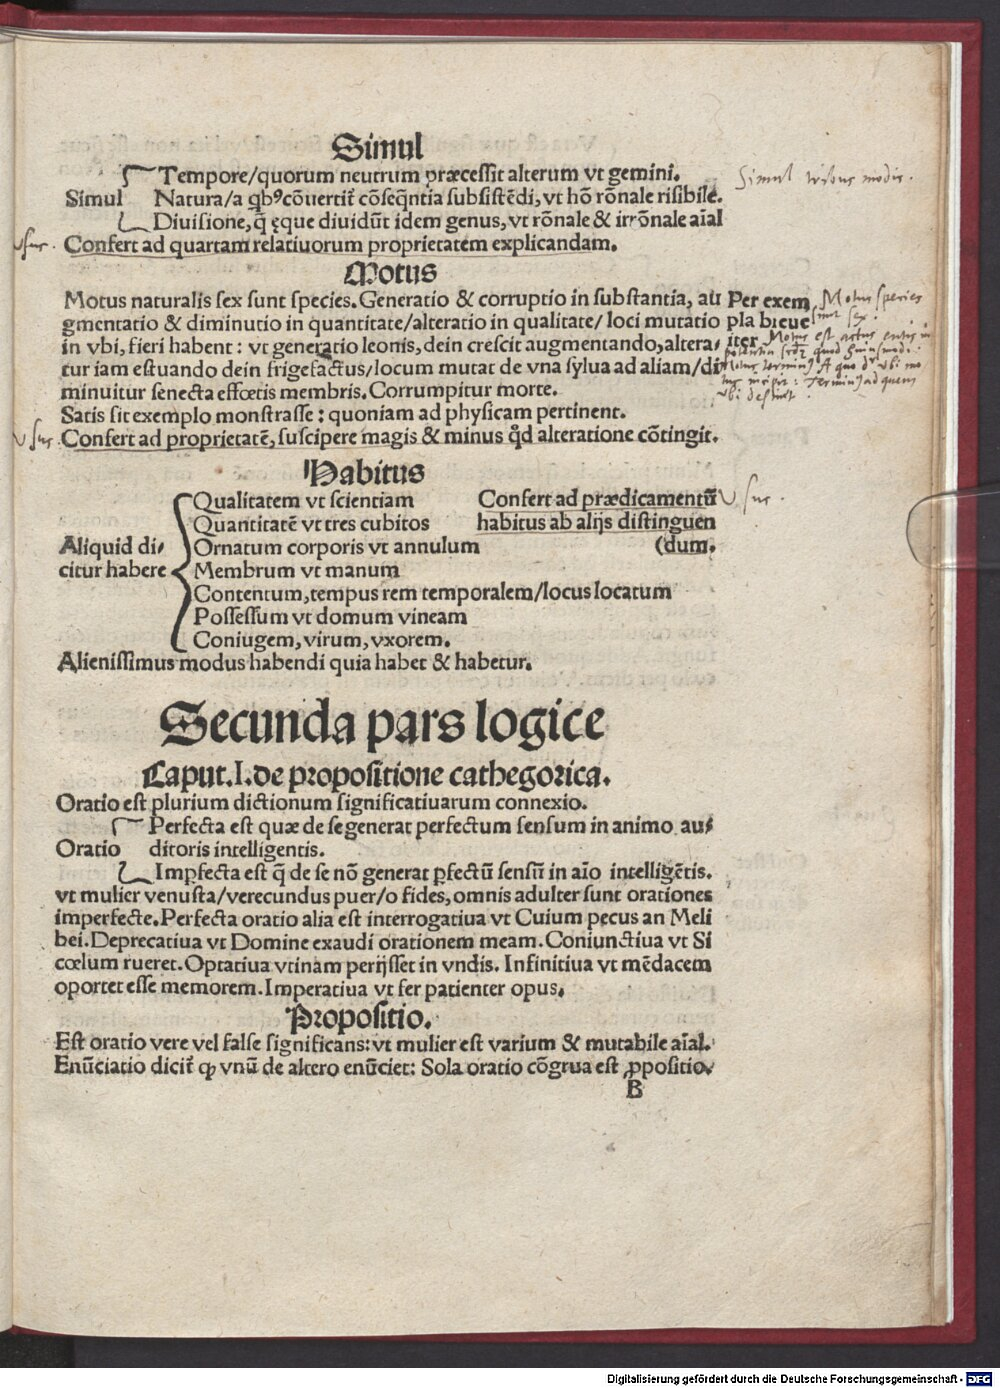 Simul
Tempore/quorum neutrum præcessit alterum vt gemini.
Simul tribus modis.
Simul Natura/a qbꝰ cōuertit᷑ cōseq̄ntia subsistēdi, vt hō rōnale risibile.
Diuisione, q̄ ęque diuidūt idem genus, vt rōnale & irrōnale aīal
Confert ad quartam relatiuorum proprietatem explicandam.
Motus
Motus naturalis sex sunt species. Generatio & corruptio in substantia, au
gmentatio & diminutio in quantitate/alteratio in qualitate/ loci mutatio
in vbi, fieri habent: vt generatio leonis, dein crescit augmentando, altera⸗
tur iam estuando dein frigefactus/locum mutat de vna sylua ad aliam/di
minuitur senecta effœtis membris. Corrumpitur morte.
Satis sit exemplo monstrasse: quoniam ad physicam pertinent.
Confert ad proprietatē, suscipere magis & minus q̊d alteratione cōtingit.
Per exem
pla breue
iter
Motus species
sunt sex.
Motus est actus entis in
Habitus
Qualitatem vt scientiam
Quantitatē vt tres cubitos
Aliquid di⸗ Ornatum corporis vt annulum
citur habere Membrum vt manum
Contentum, tempus rem temporalem/locus locatum
Possessum vt domum vineam
Coniugem, virum, vxorem.
Confert ad prædicamentū
habitus ab alijs distinguen
(dum.
Alienissimus modus habendi quia habet & habetur.
Secunda pars logice
Caput.I.de propositione cathegorica.
Oratio est plurium dictionum significatiuarum connexio.
Perfecta est quæ de se generat perfectum sensum in animo au⸗
Oratio ditoris intelligentis.
Imꝑfecta est q̄ de se nō generat ꝑfectū sensū in aīo intelligētis.
vt mulier venusta/verecundus puer/o fides, omnis adulter sunt orationes
imperfecte. Perfecta oratio alia est interrogatiua vt Cuium pecus an Meli
bei. Deprecatiua vt Domine exaudi orationem meam. Coniunctiua vt Si
cœlum rueret. Optatiua vtinam perijsset in vndis. Infinitiua vt mēdacem
oportet esse memorem. Imperatiua vt fer patienter opus.
Propositio.
Est oratio vere vel false significans: vt mulier est varium & mutabile aīal.
Enūciatio dicit᷑ ꝙ vnū de altero enūciet: Sola oratio cōgrua est ꝓpositio.
B
Digitalisierung gefördert durch die Deutsche Forschungsgemeinschaft - DFG